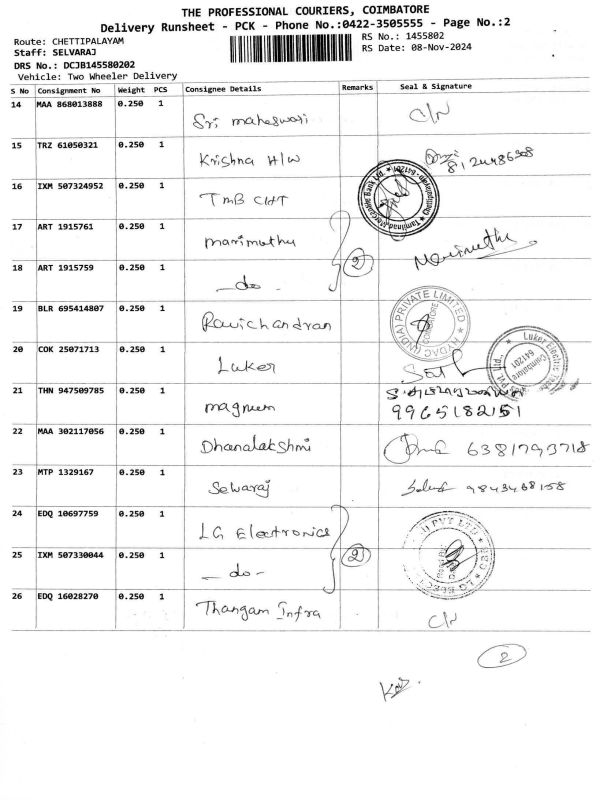 THE PROFESSIONAL COURIERS, COIMBATORE
Delivery Runsheet - PCK - Phone No:0422-3505555 - Page No.:2
Route: CHETTIPALAYAM
RS No.: 1455802
Staff: SELVARAJ
RS Date: 08-Nov-2024
DRS No.: DCJB145580202
Vehicle: Two Wheeler Delivery
S No Consignment No Weight PCS Consignee Details Remarks Seal & Signature
14 MAA 868013888 0.250 1 Sri maheswari C/N
15 TRZ 61050321 0.250 1 Krishna H/W 8124486308
16 IXM 507324952 0.250 1 TMB CHT
Tamilnad Mercantile Bank Ltd. Chettipalayam - 641201
17 ART 1915761 0.250 1 marimuthu Marimuthu
2
18 ART 1915759 0.250 1 - do -
19 BLR 695414807 0.250 1 Ravichandran
HYDAC (INDIA) PRIVATE LIMITED COIMBATORE
20 COK 25071713 0.250 1 Luker
Luker Electric Pvt. Ltd., Coimbatore 641201
21 THN 947509785 0.250 1 magnum 9965182151
22 MAA 302117056 0.250 1 Dhanalakshmi 6381793718
23 MTP 1329167 0.250 1 Selvaraj 9843468158
24 EDQ 10697759 0.250 1 LG Electronics
2
25 IXM 507330044 0.250 1 - do -
26 EDQ 16028270 0.250 1 Thangam Infra C/N
2